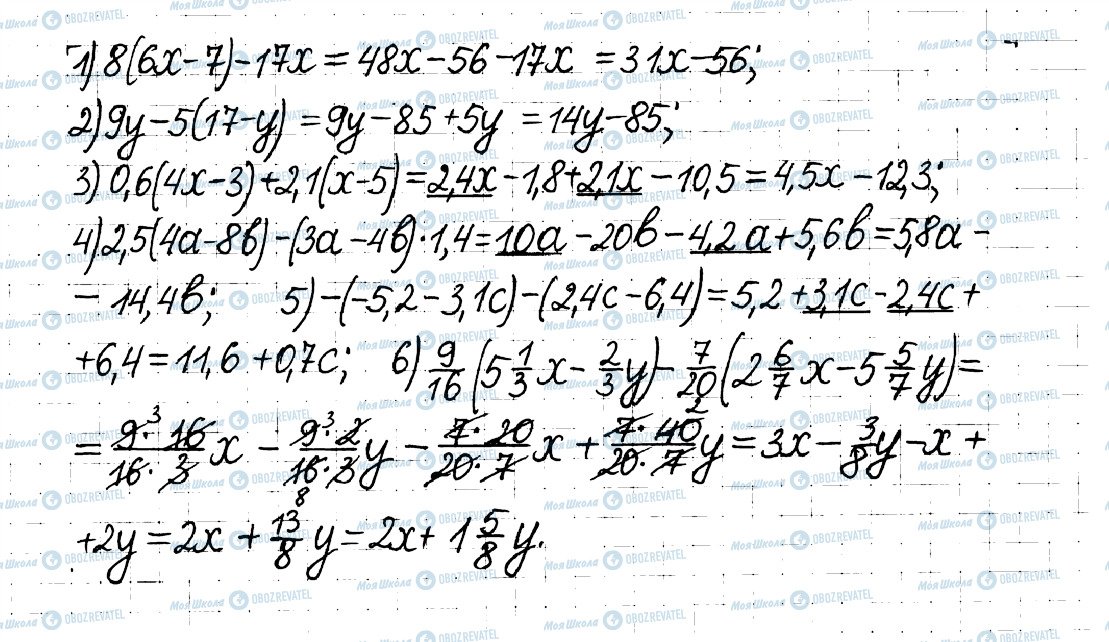 1) 8(6x-7)-17x = 48x-56-17x = 31x-56;
2) 9y-5(17-y) = 9y-85+5y = 14y-85;
3) 0,6(4x-3)+2,1(x-5) = 2,4x-1,8+2,1x-10,5 = 4,5x-12,3;
4) 2,5(4a-8b)-(3a-4b)·1,4 = 10a-20b-4,2a+5,6b = 5,8a-
-14,4b; 5) -(-5,2-3,1c)-(2,4c-6,4) = 5,2+3,1c-2,4c+
+6,4 = 11,6+0,7c; 6) 9/16 (5 1/3 x - 2/3 y) - 7/20 (2 6/7 x - 5 5/7 y) =
= 9·16/16·3 x - 9·2/16·3 y - 7·20/20·7 x + 7·40/20·7 y = 3x - 3/8 y - x +
+2y = 2x + 13/8 y = 2x + 1 5/8 y.